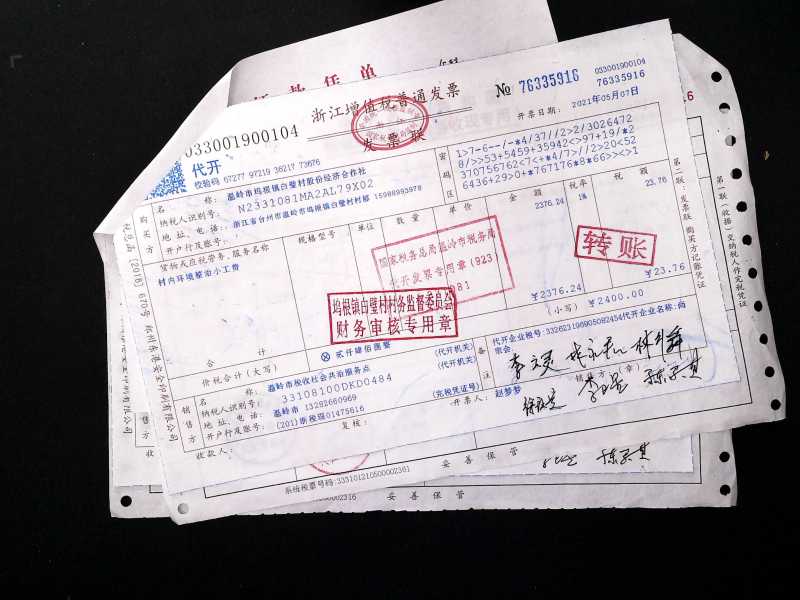 款凭单
033001900104
浙江增值税普通发票
发票联
№ 76335916
033001900104
76335916
代开
校验码 67277 97219 36217 73676
开票日期: 2021年05月07日
购买方
名称: 温岭市坞根镇白璧村股份经济合作社
纳税人识别号: N2331081MA2AL79X02
地址、电话: 浙江省台州市温岭市坞根镇白璧村村部 15988993978
开户行及账号:
密码区
1>7-6--/-*4/37//2>2/3026472
8/>>53+5459+35942<>97+19/*2
370756762<7<+*4/7>//2>20<52
6436+29>0+*767176*8*66>><>1
货物或应税劳务、服务名称
规格型号
单位
数量
单价
金额
税率
税额
村内环境整治小工费
2376.24
1%
23.76
国家税务总局温岭市税务局
代开发票专用章(923)
转账
坞根镇白璧村村务监督委员会
财务审核专用章
合计
¥2376.24
¥23.76
价税合计(大写)
⊗贰仟肆佰圆整
(小写) ¥2400.00
销售方
名称: 温岭市税收社会共治服务点
(代开机关)
纳税人识别号: 33108100DKD0484
(代开机关)
地址、电话: 温岭市 13282660969
开户行及账号: (201)浙税现01475616
(完税凭证号)
备注
代开企业税号:332623196905082454代开企业名称:尚宗会
收款人:
复核:
开票人: 赵梦梦
销售方:(章)
第二联:发票联 购买方记账凭证
第一联(收据)交纳税人作完税凭证
系统税票号码:333101210500002361
妥善保管
妥善保管